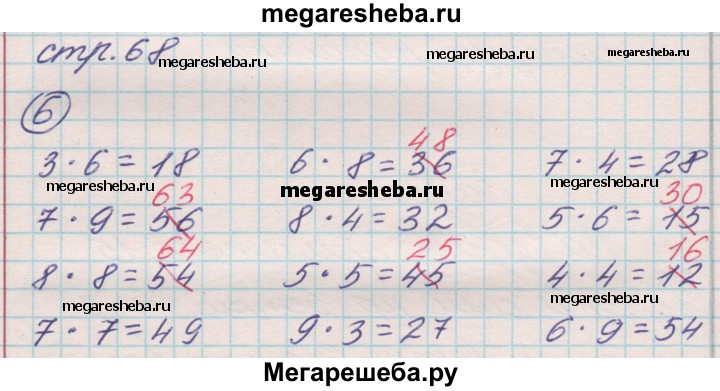 megaresheba.ru
стр. 68 megaresheba.ru megaresheba.ru megaresheba.ru
6 megaresheba.ru megaresheba.ru
48
3 · 6 = 18 6 · 8 = 36 7 · 4 = 28
megaresheba.ru megaresheba.ru megaresheba.ru
63 30
7 · 9 = 56 8 · 4 = 32 5 · 6 = 15
64 25 16
8 · 8 = 54 5 · 5 = 45 4 · 4 = 12
megaresheba.ru megaresheba.ru megaresheba.ru
7 · 7 = 49 9 · 3 = 27 6 · 9 = 54
Мегарешеба.ру